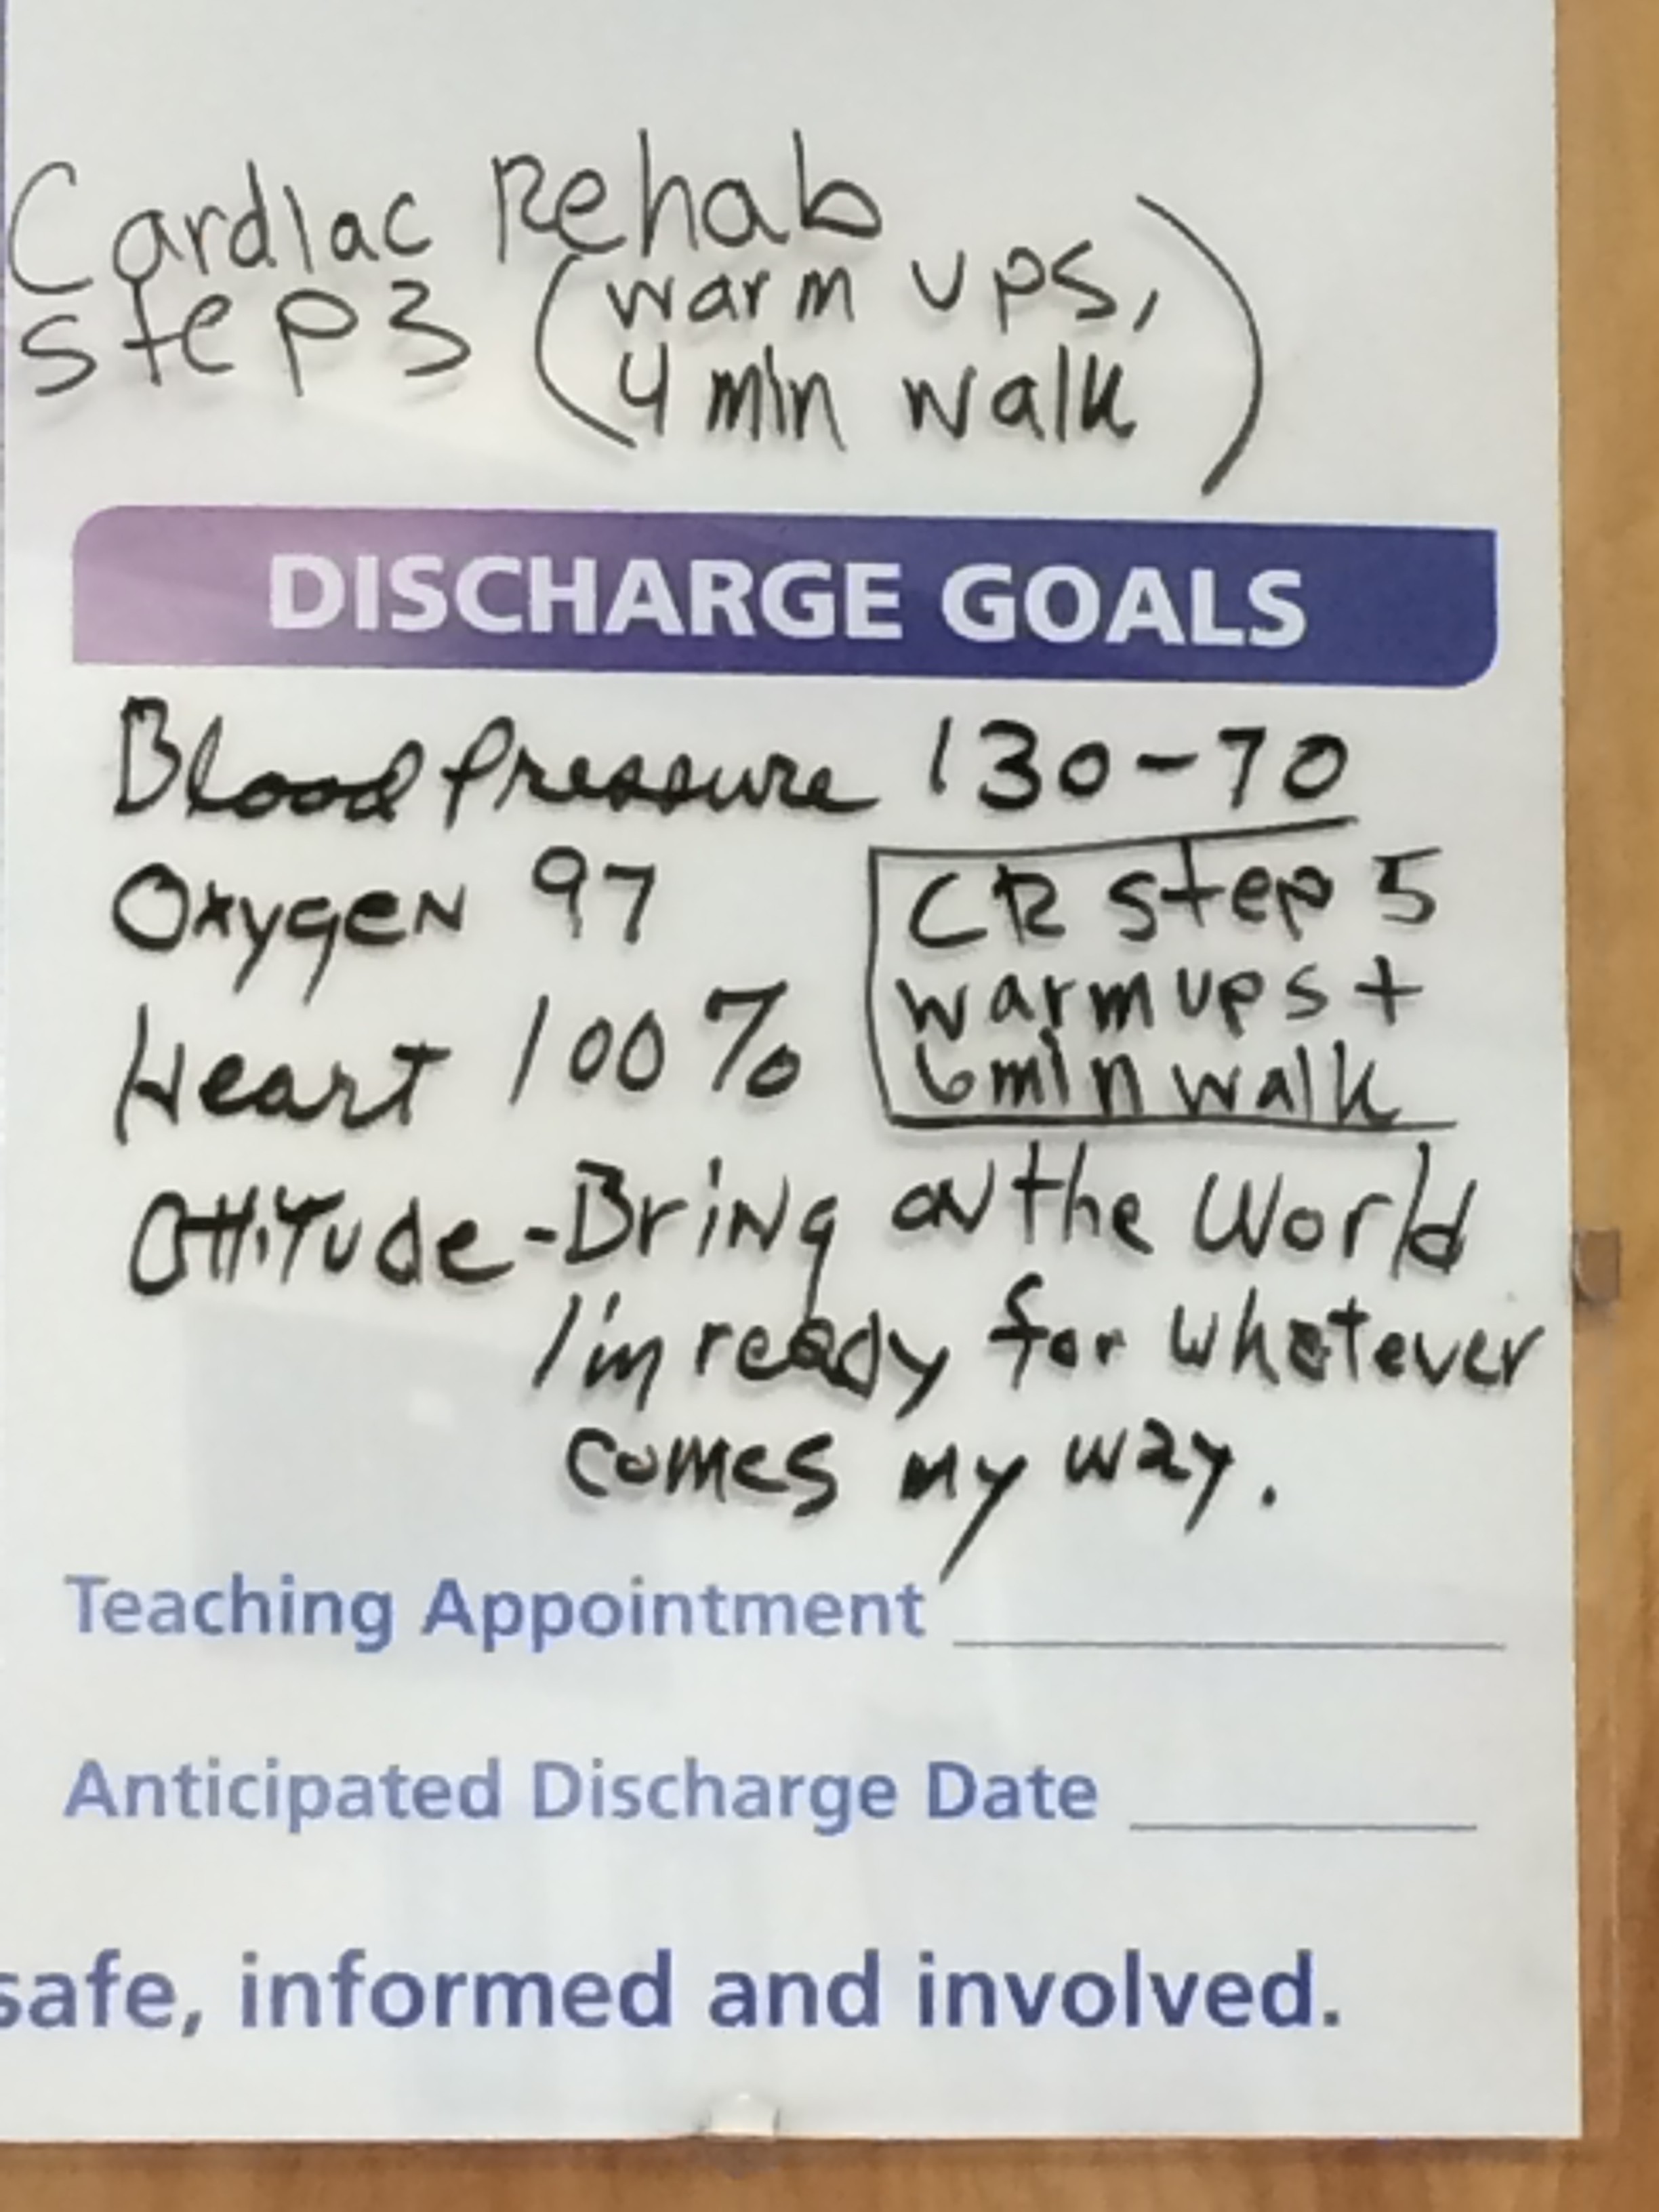 Cardiac Rehab
step 3 (warm ups,
4 min walk)
DISCHARGE GOALS
Blood Pressure 130-70
Oxygen 97
Heart 100%
CR step 5
warm ups +
6 min walk
Attitude - Bring on the World
I'm ready for whatever
comes my way.
Teaching Appointment
Anticipated Discharge Date
safe, informed and involved.